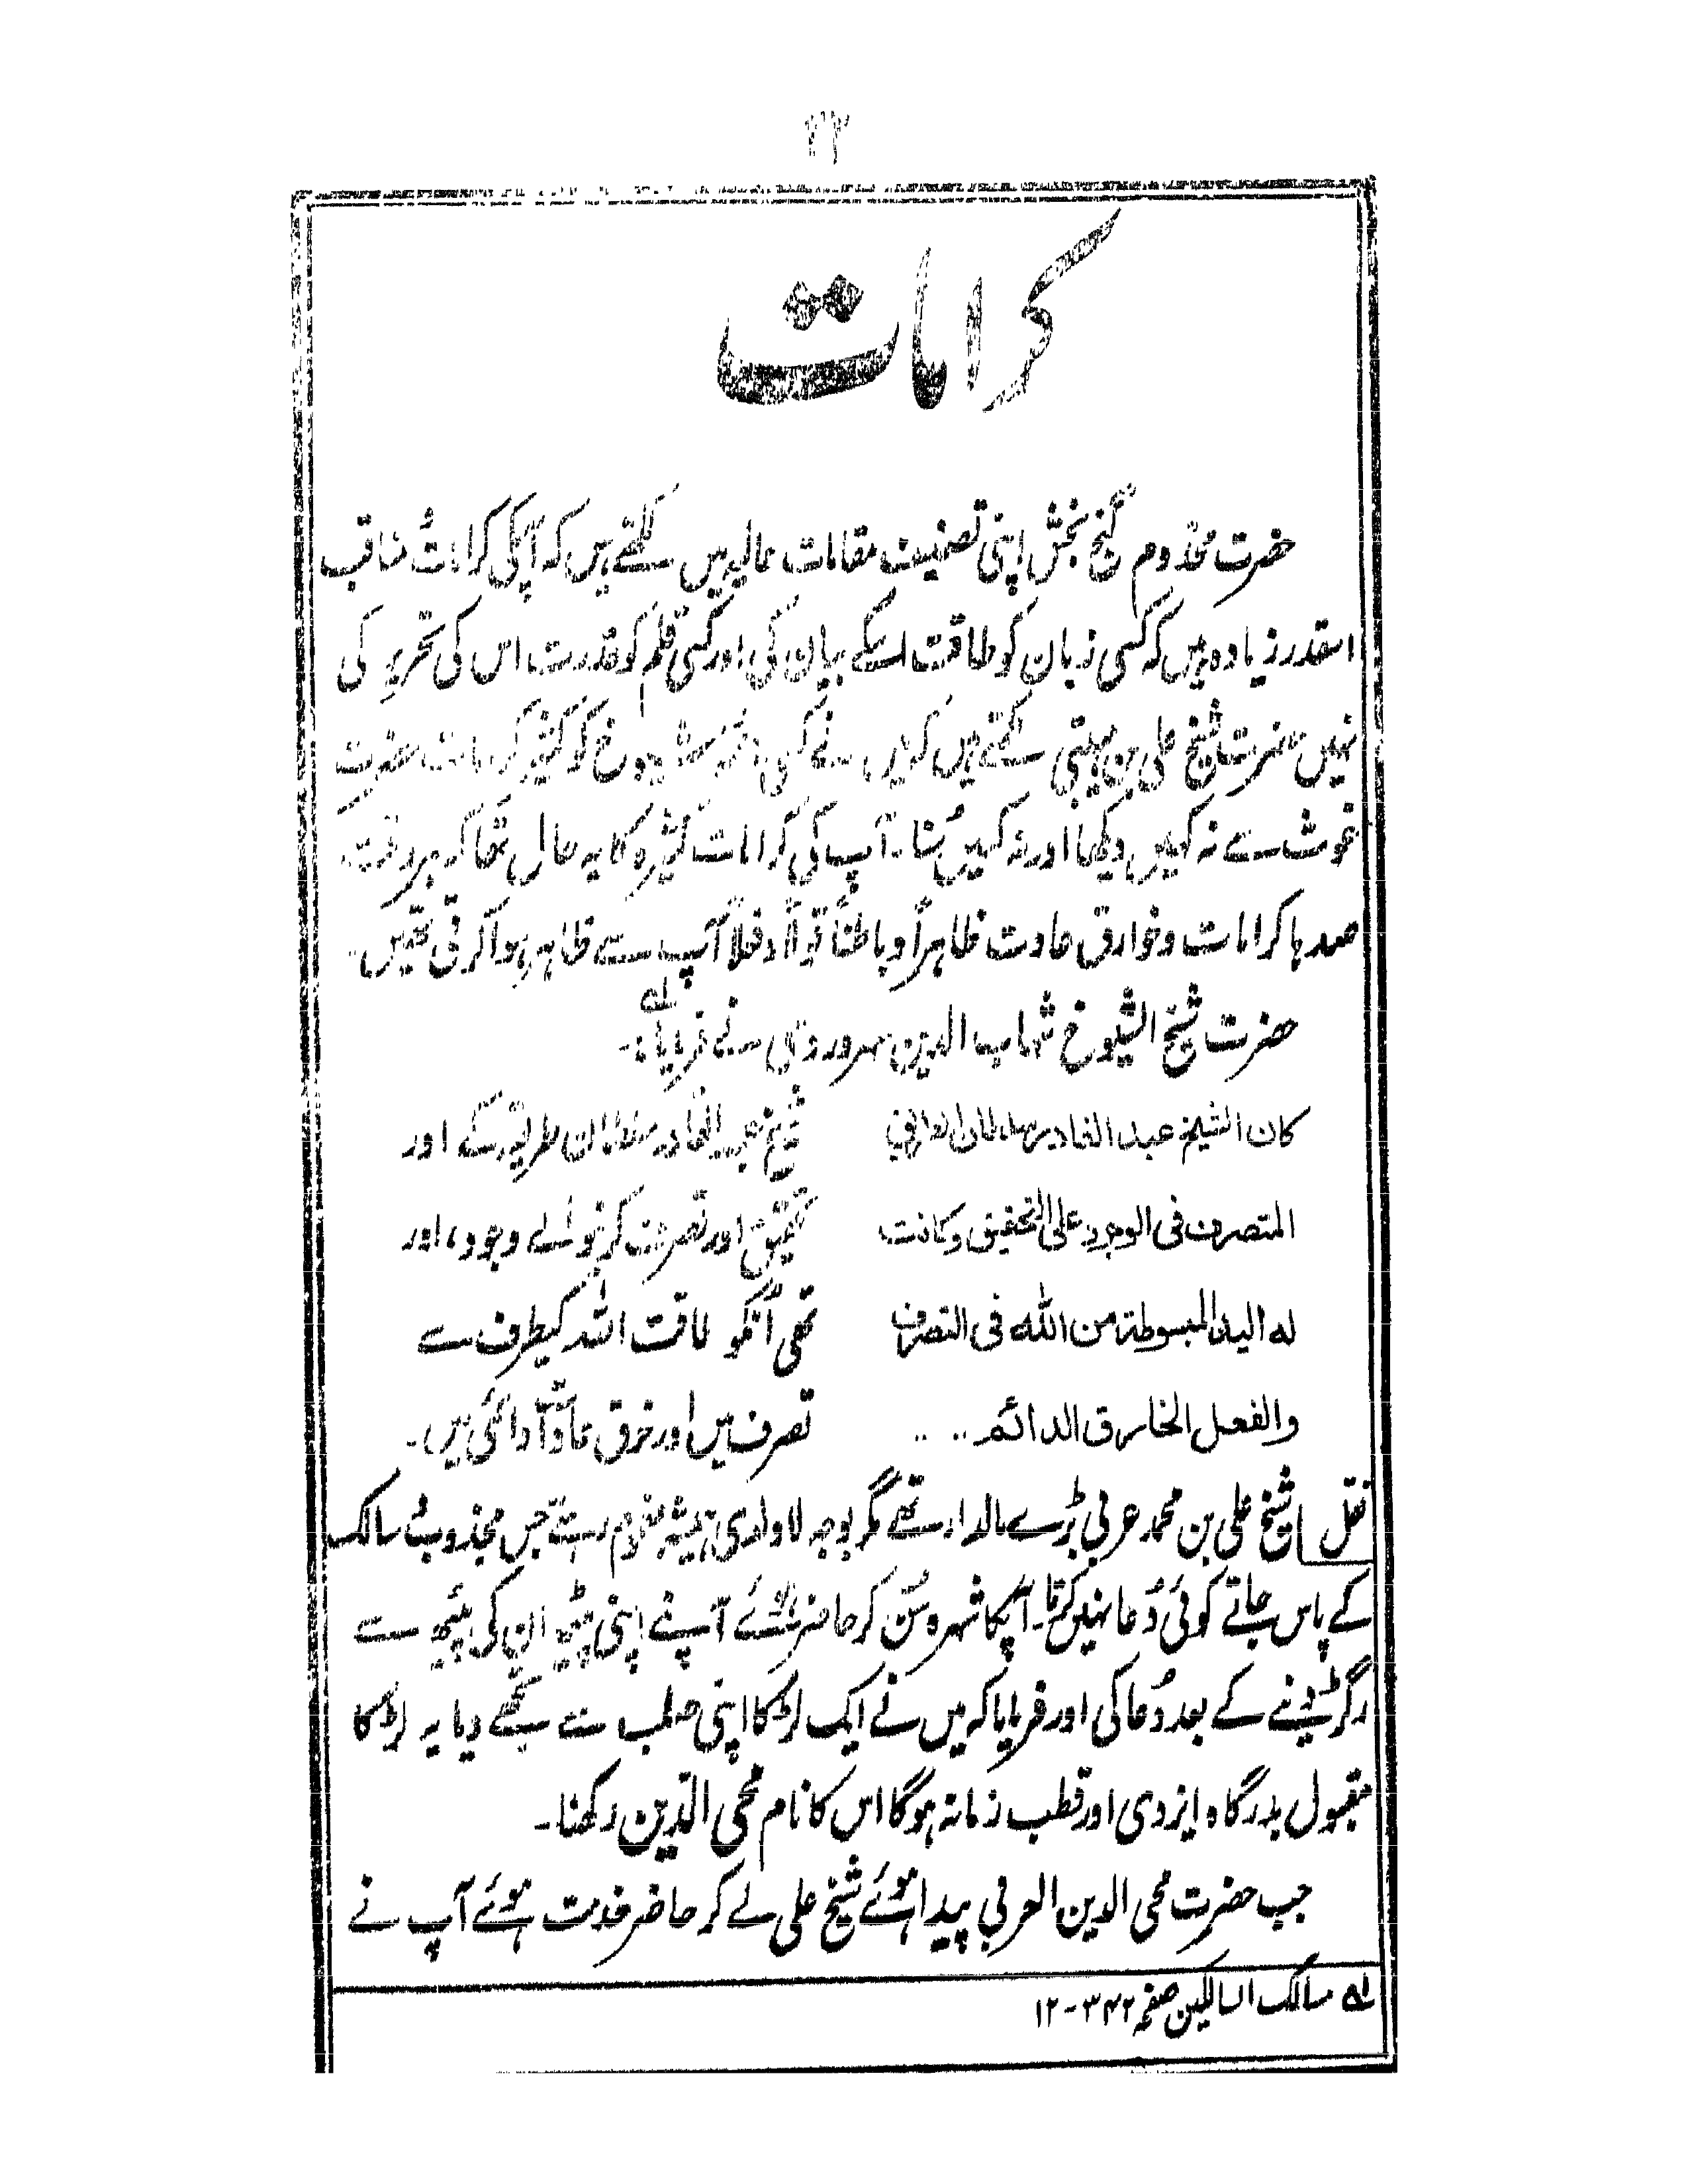 ۲۳
کرامات
حضرت مخدوم گنج بخش اپنی تصنیف مقامات عالیہ میں لکھتے ہیں کہ آپکی کرامات مناقب
اسقدر زیادہ ہیں کہ کسی زبان کو طاقت اسکے بیان کی اور کسی قلم کو قدرت اس کی تحریر کی
نہیں حضرت شیخ علی بن ہیتی کہتے ہیں کہ میں نے کسی کو کثیر کرامت حضرت
غوث سے نہ کہیں دیکھا اور نہ کہیں سُنا۔ آپ کی کرامات کثیرہ کا یہ حال تھا کہ ہر وقت
صدہا کرامات و خوارق عادت ظاہراً و باطناً قولاً و فعلاً آپ سے ظاہر ہوا کرتی تھیں۔
حضرت شیخ الشیوخ شہاب الدین سہروردی نے فرمایا لہ ہ۔
کان الشیخ عبد القادر سلطان الطریق
شیخ عبد القادر سلطان طریق کے اور
المتصرف فی الوجود علی التحقیق وکانت
تحقیق اور تصرف کرنوالے وجود، اور
له الید المبسوطة من الله فی التصرف
تھی اُنکو طاقت اللہ کیطرف سے
والفعل الخارق الدائم ۔۔ ۔۔
تصرف میں اور خرق عادت دائمی ہیں۔
نقل شیخ علی بن محمد عربی بڑے مالدار تھے مگر بوجہ لاولدی ہمیشہ مغموم رہتے جس مجذوب سالک
کے پاس جاتے کوئی دُعا نہیں کرتا۔ آپکا شہرہ سُن کر حاضر ہوئے آپ نے اپنی پیٹھ ان کی پیٹھ سے
رگڑ دینے کے بعد دُعا کی اور فرمایا کہ میں نے ایک لڑکا اپنی صلب سے تجھے دیا یہ لڑکا
مقبول بدرگاہ ایزدی اور قطب زمانہ ہوگا اس کا نام محی الدّین رکھنا۔
جب حضرت محی الدین العربی پیدا ہوئے شیخ علی لے کر حاضر خدمت ہوئے آپ نے
لہ مسالک السالکین صفحہ ۳۴۲-۱۲